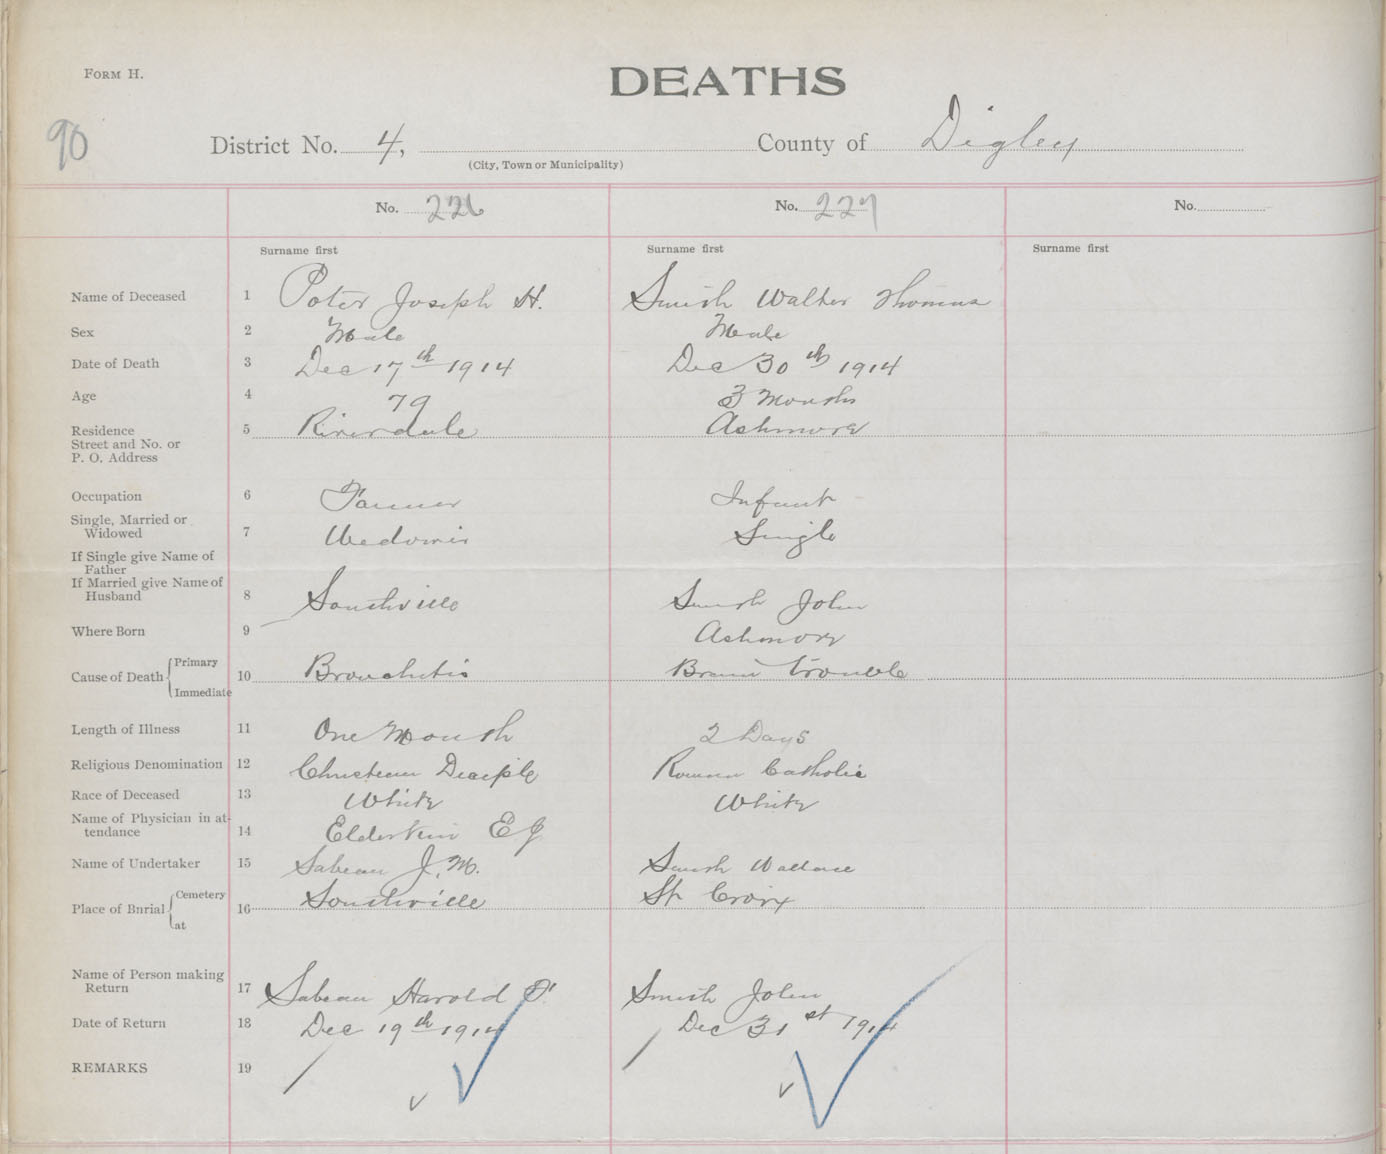 FORM H.
DEATHS
90
District No. 4, County of Digby
(City, Town or Municipality)
No. 226 No. 227 No.
Surname first Surname first Surname first
Name of Deceased 1 Poter Joseph H. Smith Walter Thomas
Sex 2 Male Male
Date of Death 3 Dec 17th 1914 Dec 30th 1914
Age 4 79 3 Months
Residence 5 Riverdale Ashmore
Street and No. or
P. O. Address
Occupation 6 Farmer Infant
Single, Married or
Widowed 7 Single
If Single give Name of
Father
If Married give Name of
Husband 8 Southville Smith John
Where Born 9 Ashmore
Cause of Death Primary 10 Bronchitis Brain trouble
Immediate
Length of Illness 11 One Month 2 Days
Religious Denomination 12 Christian Disciple Roman Catholic
Race of Deceased 13 White White
Name of Physician in at-
tendance 14 Elderkin E J
Name of Undertaker 15 Sabean J. M. Smith Wallace
Place of Burial Cemetery 16 Southville St Croix
at
Name of Person making
Return 17 Sabean Harold Smith John
Date of Return 18 Dec 19th 1914 Dec 31st 1914
REMARKS 19